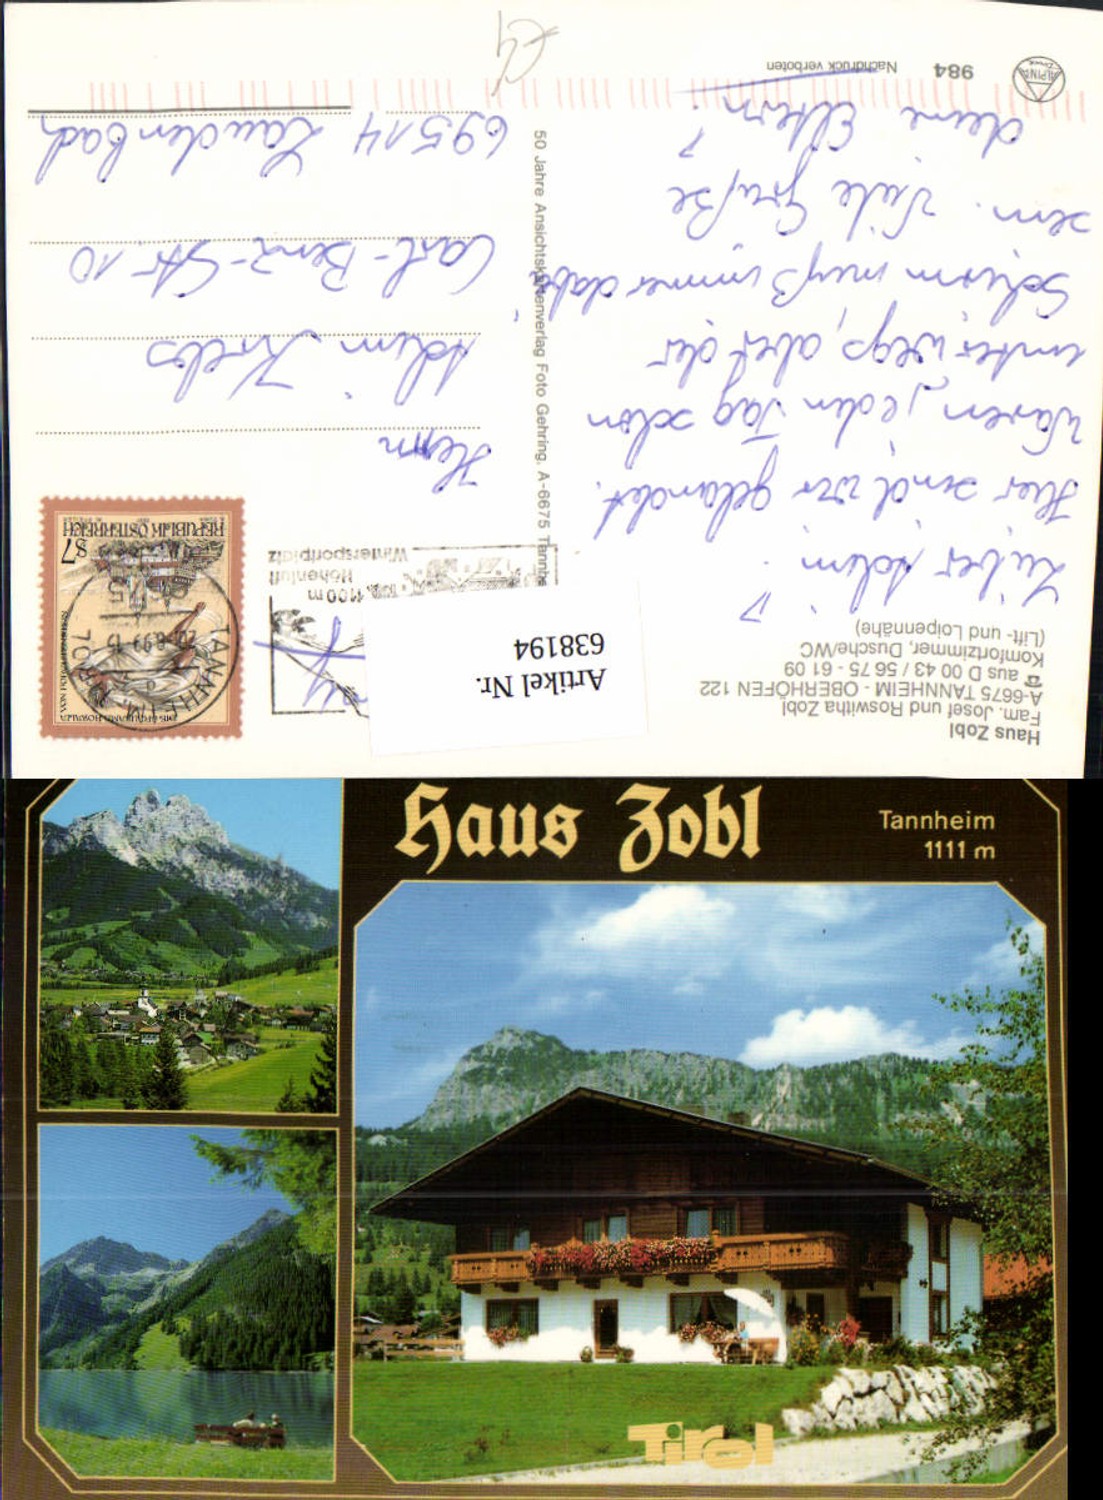 Haus Zobl
Fam. Josef und Roswitha Zobl
A-6675 TANNHEIM - OBERHÖFEN 122
☎ aus D 00 43 / 56 75 - 61 09
Komfortzimmer, Dusche/WC
(Lift- und Loipennähe)
Lieber Achim.
Hier sind wir gelandet.
Waren jeden Tag schon
unterwegs, aber der
Schirm muß immer dabei
sein. Viele Grüße
deine Eltern.
984
Nachdruck verboten
ALPINA
Druck
50 Jahre Ansichtskartenverlag Foto Gehring, A-6675 Tannh
Artikel Nr.
638194
1100 m
Höhenluft
Wintersportplatz
TANNHEIM
REPUBLIK ÖSTERREICH
S7
Herrn
Achim Krebs
Carl-Benz-Str. 10
69514 Laudenbach
Haus Zobl
Tannheim
1111 m
Tirol